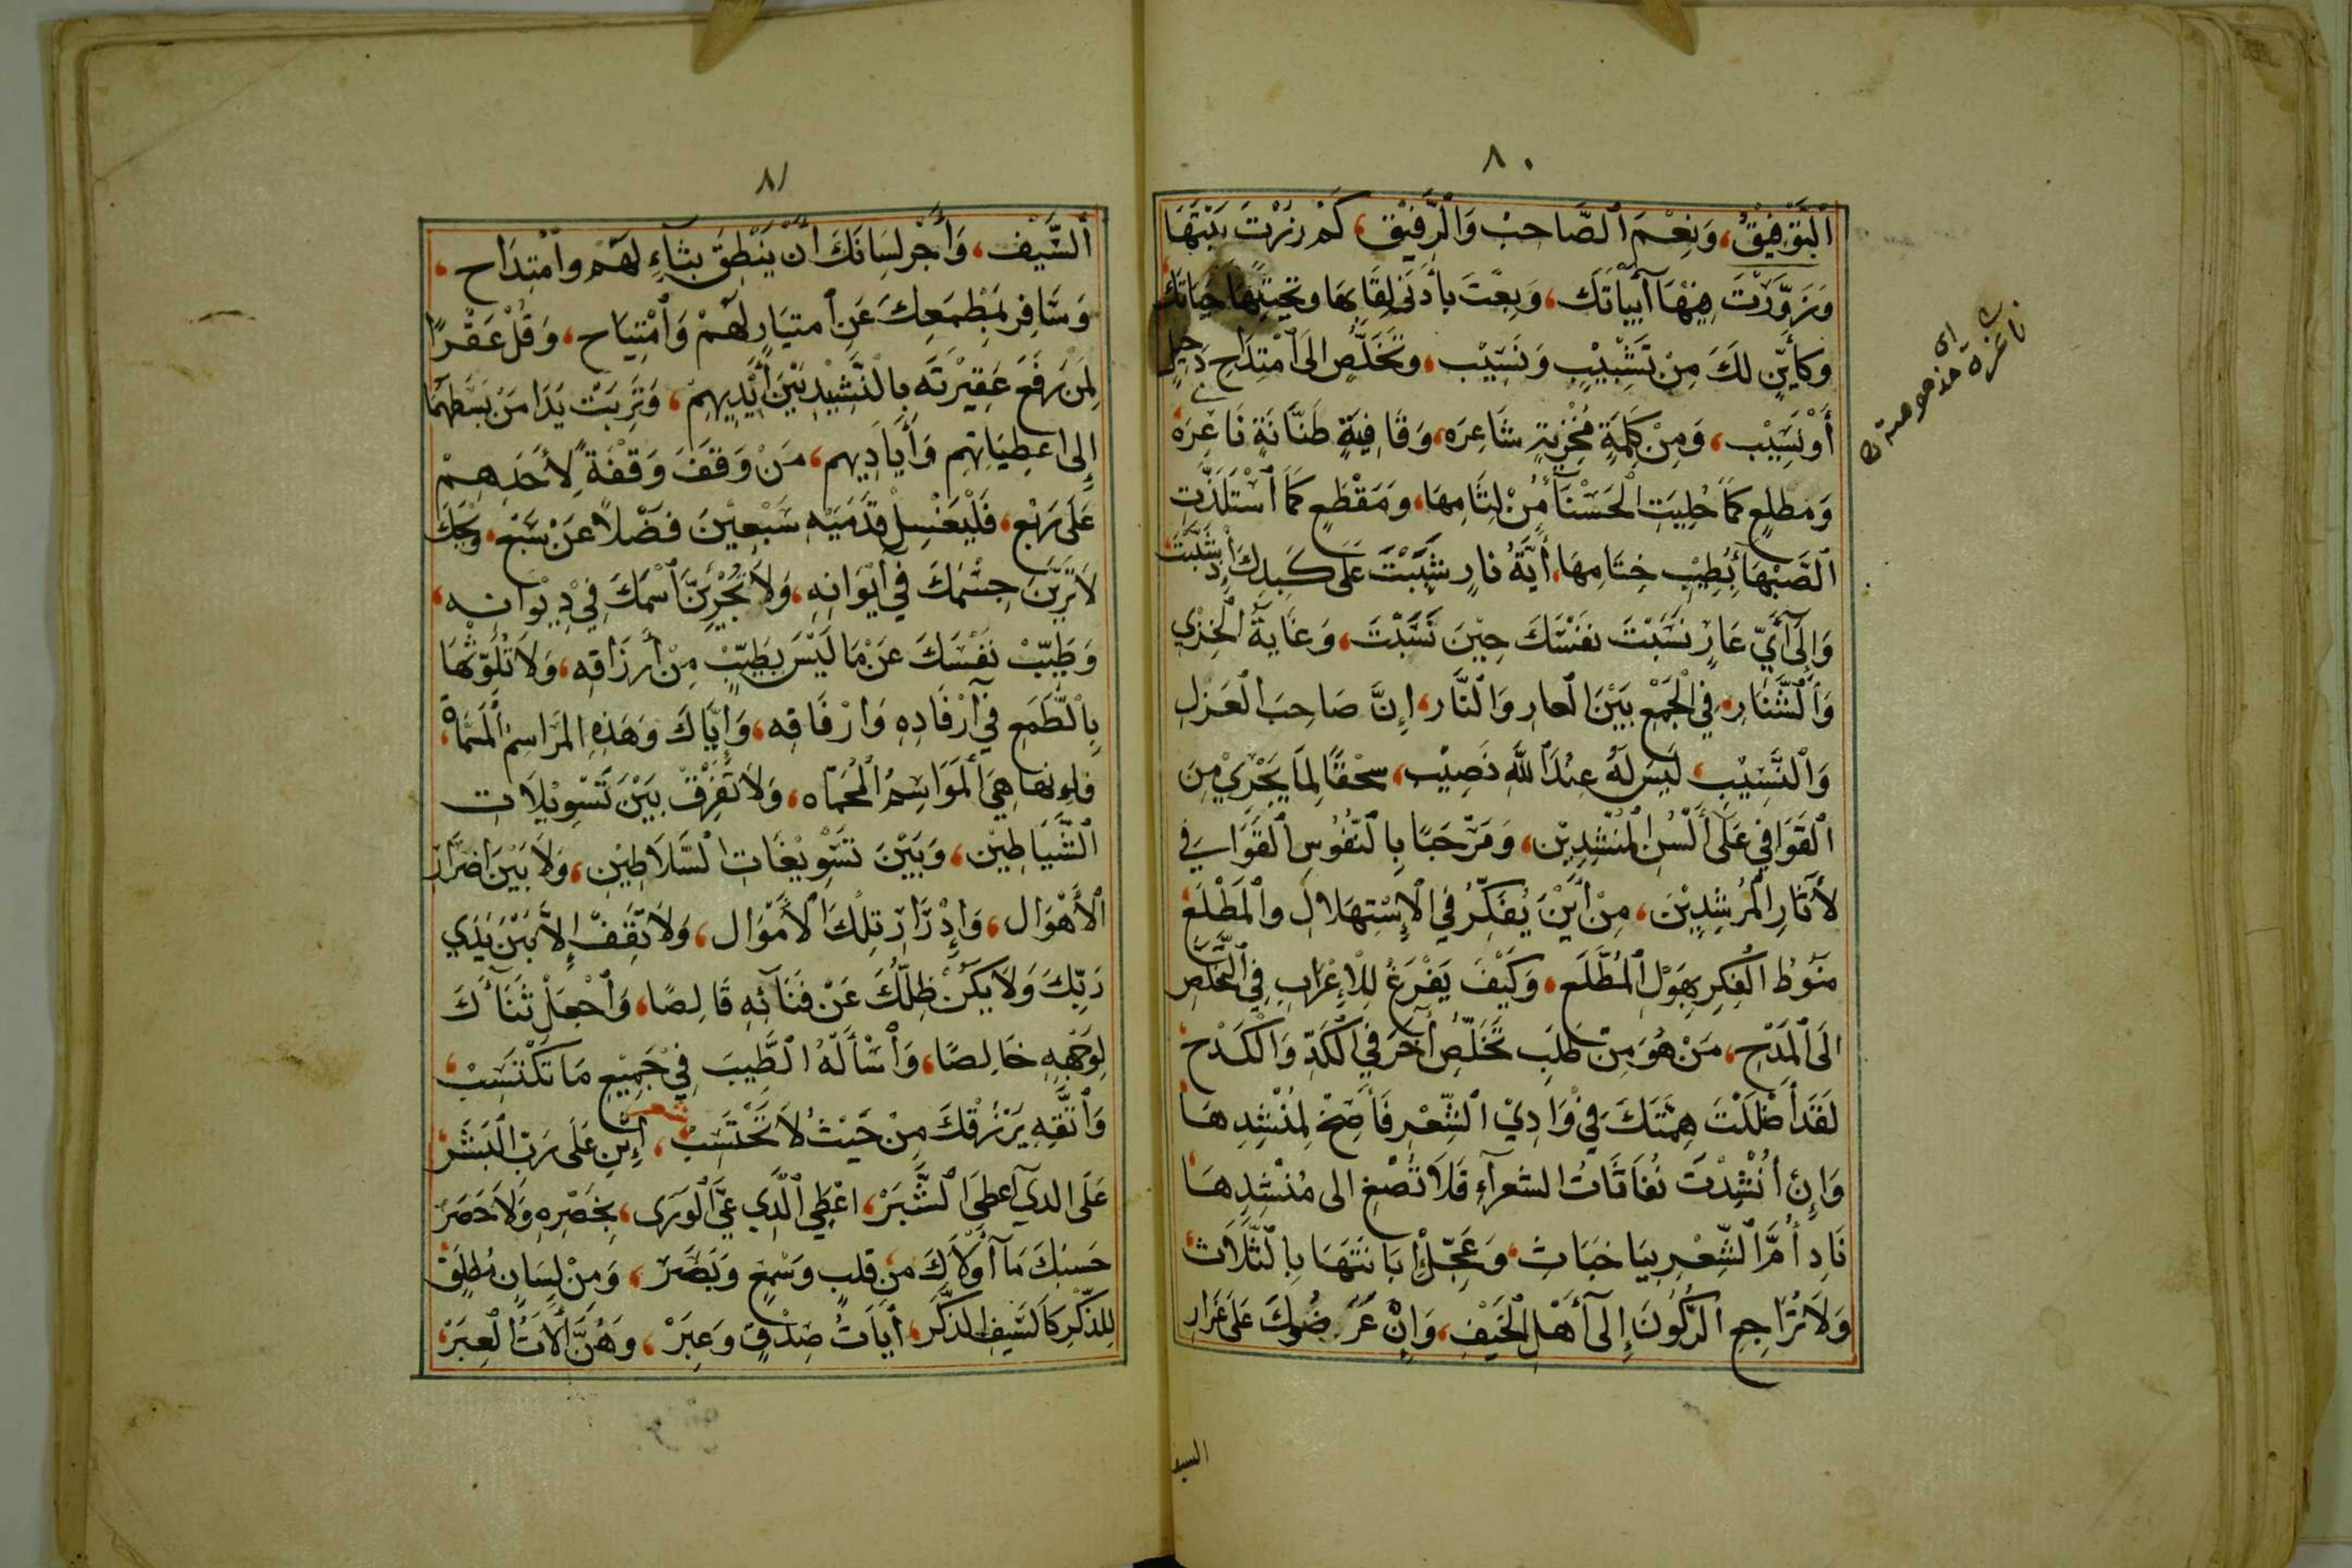 ٨٠
ٱلتَّوْفِيْقُ، وَنِعْمَ ٱلصَّاحِبُ وَالرَّفِيْقِ، كَمْ زُرْتَ بَيْتَهَا
وَزَوَّرْتَ فِيْهَا أَبْيَاتَكَ، وَبِعْتَ بِأَدْنَى لِقَائِهَا وتحيتها حَيَاتَكَ
وَكَأَيِّنٍ لَكَ مِنْ تَشْبِيْبٍ وَنَسِيْب، وَتَخَلُّصٍ إلى ٱمْتِدَاحِ دَخِيلٍ
أَوْ نَسِيْب، وَمِنْ كَلِمَةٍ مُخْزِيَةٍ شَاعِرَه، وَقَافِيَةٍ طَنَّانَةٍ نَاعِرَه
وَمَطْلَعٍ كَمَا حُلِيَتِ الْحَسْنَآءُ مِنْ لِثَامِهَا، وَمَقْطَعٍ كَمَا ٱسْتَلَذَّت
ٱلصَّهْبَآءُ بِطِيْبِ خِتَامِهَا، أَيَّةُ نَارٍ شَبَبْتَ عَلَى كَبِدِكَ إِذْ شَبَّبْتَ
وَإِلَى أَيِّ عَارٍ نَسَبْتَ نَفْسَكَ حِيْنَ نَسَّبْتَ، وَغَايَةُ الْخِزْيِ
وَٱلشَّنَارِ، فِي الْجَمْعِ بَيْنَ الْعَارِ وَالنَّارِ، إِنَّ صَاحِبَ الْغَزَلِ
وَٱلنَّسِيْبِ، لَيْسَ لَهُ عِنْدَ ٱللَّهِ نَصِيْب، سحْقًا لِمَا يَجْرِيْ مِنَ
ٱلْقَوَافِي عَلَى أَلْسُنِ الْمُنْشِدِيْن، وَمَرْحَبًا بِالنُّفُوسِ ٱلْقَوَافِي
لِآثَارِ الْمُرْشِدِيْنَ، مِنْ أَيْنَ يُفَكِّرُ فِي الْإِسْتِهْلَالِ وَالْمَطْلَعِ
مَنُوْطُ الْفِكْرِ بِهَوْلِ ٱلْمُطَّلَع، وَكَيْفَ يَفْرَغُ لِلْإِغْرَابِ فِي ٱلتَّخَلُّصِ
إلَى الْمَدْحِ، مَنْ هُوَ مِنْ طَلَبِ تَخَلُّصٍ آخَرَ فِي الْكَدِّ وَالْكَدْحِ،
لَقَدْ أَضْلَلْتَ هِمَّتَكَ فِيْ وَادِيْ ٱلشِّعْرِ فَأَصِخْ لِمُنْشِدِهَا
وَإِنْ أُنْشِدْتَ نُفَاثَاتُ الشعرآءِ فَلَا تُصْغِ الى مُنْشِدِهَا،
نَادِ أُمَّ الشِّعْرِ بِيَا خَبَاثِ، وَعَجِّلْ إِبَانَتَهَا بِالثَّلَاث،
وَلَا تُرَاجِعِ الرُّكُونَ إِلَى أَهْلِ الْحَيْفِ، وَإِنْ عَرَضُوكَ عَلَى غِرَارِ
السيف
اى
ناعرة
٨١
ٱلسَّيْف، وَأَجِرْ لِسَانَكَ أَنْ يَنْطِقَ بِثَنَاءٍ لَهُمْ وامْتِدَاح،
وَسَافِرْ بِمَطْمَعِكَ عَنِ ٱمتيَارٍ لَهُمْ وَٱمْتِيَاح، وَقُلْ عَقْرًا
لِمَنْ رَفَعَ عَقِيْرَتَه بِالنَّشِيْدِ بَيْنَ أَيْدِيهِمْ، وَتَرِبَتْ يَدَا مَنْ بَسَطَهُمَا
إِلَى اعطِيَاتِهِم وَأَيَادِيهِم، مَنْ وَقَفَ وَقْفَةً لِأَحَدِهِمْ
عَلَى رَبْعٍ، فَلْيَغْسِلْ قَدَمَيْهِ سَبْعِيْنَ فَضْلًا عَنْ سَبْع، وَيْحَكَ
لَا تَرَيَنَّ جِسْمَكَ فِي إيْوَانِهِ، وَلَا تُجْرِيَنَّ ٱسْمَكَ فِيْ دِيْوَانِهِ،
وَطَيِّبْ نَفْسَكَ عَنْ مَا لَيْسَ بِطَيِّبٍ مِنْ أَرْزَاقِهِ، وَلَا تُلَوِّثْهَا
بِالطَّمَعِ فِي أَرْفَادِهِ وَارْفَاقِه، وَإِيَّاكَ وَهَذِهِ المَرَاسِمْ ٱلْمُسَمَّاة،
فَإِنهَا هِيَ ٱلْمَوَاسِمُ ٱلْمُحَمَّاه، وَلَا تُفَرِّقْ بَيْنَ تَسْوِيْلَات
ٱلشَّيَاطِيْن، وَبَيْنَ تَسْوِيْغَاتِ السَّلَاطِيْن، وَلَا بَيْنَ اضرَارِ
ٱلْأَهْوَال، وَإِدْرَارِ تِلْكَ الْأَمْوَال، وَلَا تَقِفْ إِلَّا بَيْنَ يَدَي
رَبِّكَ وَلَا يَكُنْ ظِلُّكَ عَنْ فِنَآئِهِ قَالِصًا، وَٱجْعَلْ ثَنَآءَكَ
لِوَجْهِهِ خَالِصًا، وَٱسْأَلْهُ الطَّيِّبَ فِيْ جَمِيْعِ مَا تَكْتَسِبْ،
وَٱتَّقِهِ يَرْزُقْكَ مِنْ حَيْثُ لَا تَحْتَسِبْ، شعر أَثْنِ عَلَى رَبِّ الْبَشَرْ،
عَلَى الذي أعطى الشَّبَرْ، اعْطِي الَّذِي عَيَّ الْوَرَى، بِحَصْرِهِ وَلَا حَصَرْ
حَسْبُكَ مَا أَوْلَاكَ مِنْ قلبٍ وَسَمْعٍ وَبَصَرْ، وَمِنْ لِسَانٍ مُطْلَقٍ
لِلذِّكْرِ كَالسَّيفِ الذَّكَرْ، أيَاتُ صِدْقٍ وَعِبَرْ، وَهُنَّ آلَاتُ الْعِبَرْ